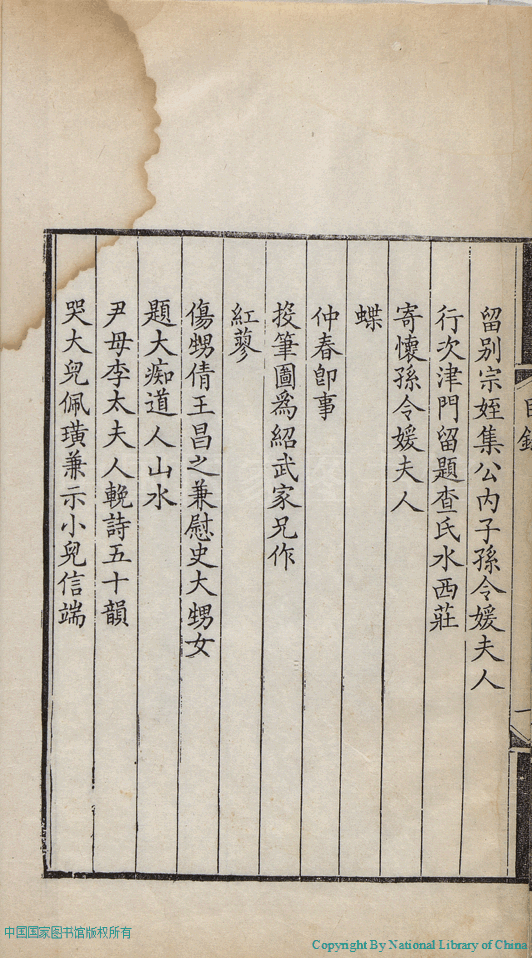 留别宗姪集公内子孫令媛夫人
行次津門留題查氏水西莊
寄懷孫令媛夫人
蝶
仲春卽事
投筆圖爲紹武家兄作
紅蓼
傷甥倩王昌之兼慰史大甥女
題大痴道人山水
尹母李太夫人輓詩五十韻
哭大兒佩璜兼示小兒信端
目錄
一
中国国家图书馆版权所有
Copyright By National Library of China